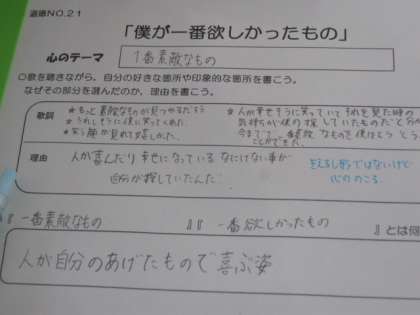 道徳NO.21
「僕が一番欲しかったもの」
心のテーマ 1番素敵なもの
○歌を聴きながら、自分の好きな箇所や印象的な箇所を書こう。
なぜその部分を選んだのか、理由を書こう。
歌詞
★もっと素敵なものが見つかるだろう
★うれしそうに僕に笑ってくれた
★笑う顔が見れて嬉しかった。
★人が幸せそうに笑っていてそれを見た時の
気持ちが僕の探していたものだと
今までで一番素敵なものを僕はもう
ことができた。
理由
人が喜んだり幸せになっているなにげない事が
自分が探していたんだ
見える形ではないけど
心にのこる
『一番素敵なもの』『一番欲しかったもの』とは何
人が自分のあげたもので喜ぶ姿